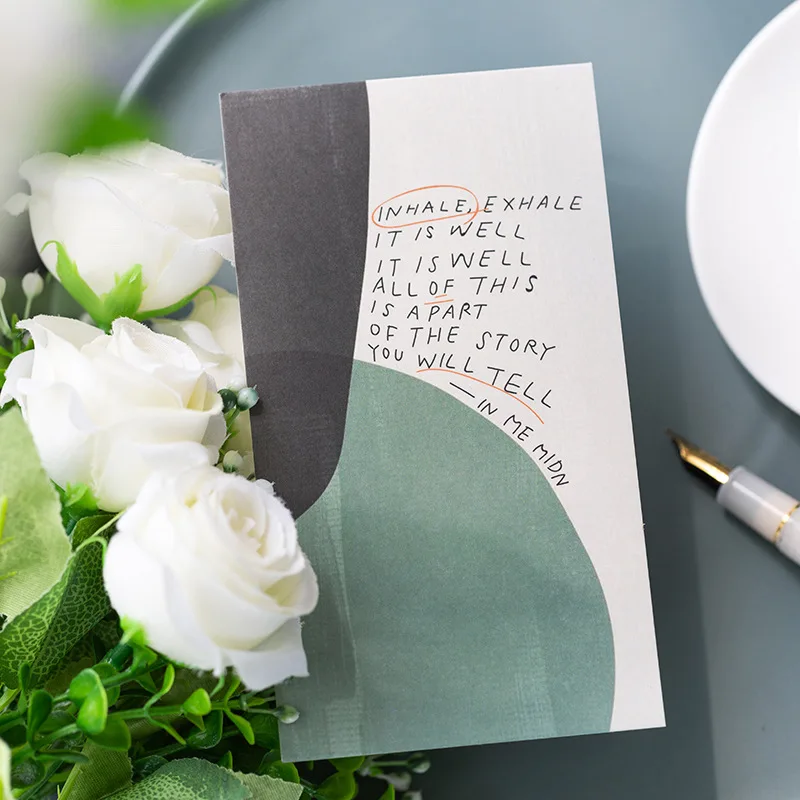 INHALE, EXHALE
IT IS WELL
IT IS WELL
ALL OF THIS
IS A PART
OF THE STORY
YOU WILL TELL
—IN ME MIDN